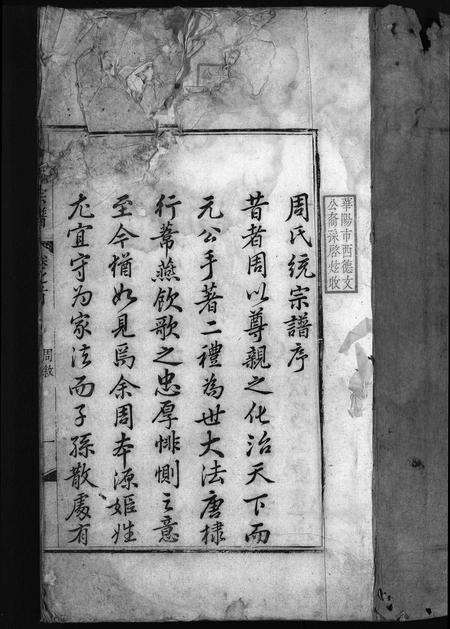 周氏統宗譜序
昔者周以尊親之化治天下而
元公手著二禮為世大法唐棣
行葦燕飲歌之忠厚悱惻之意
至今猶如見焉余周本源姬姓
尤宜守为家法而子孫散處有
周敘
華陽市西德文
公裔孫啓炫收